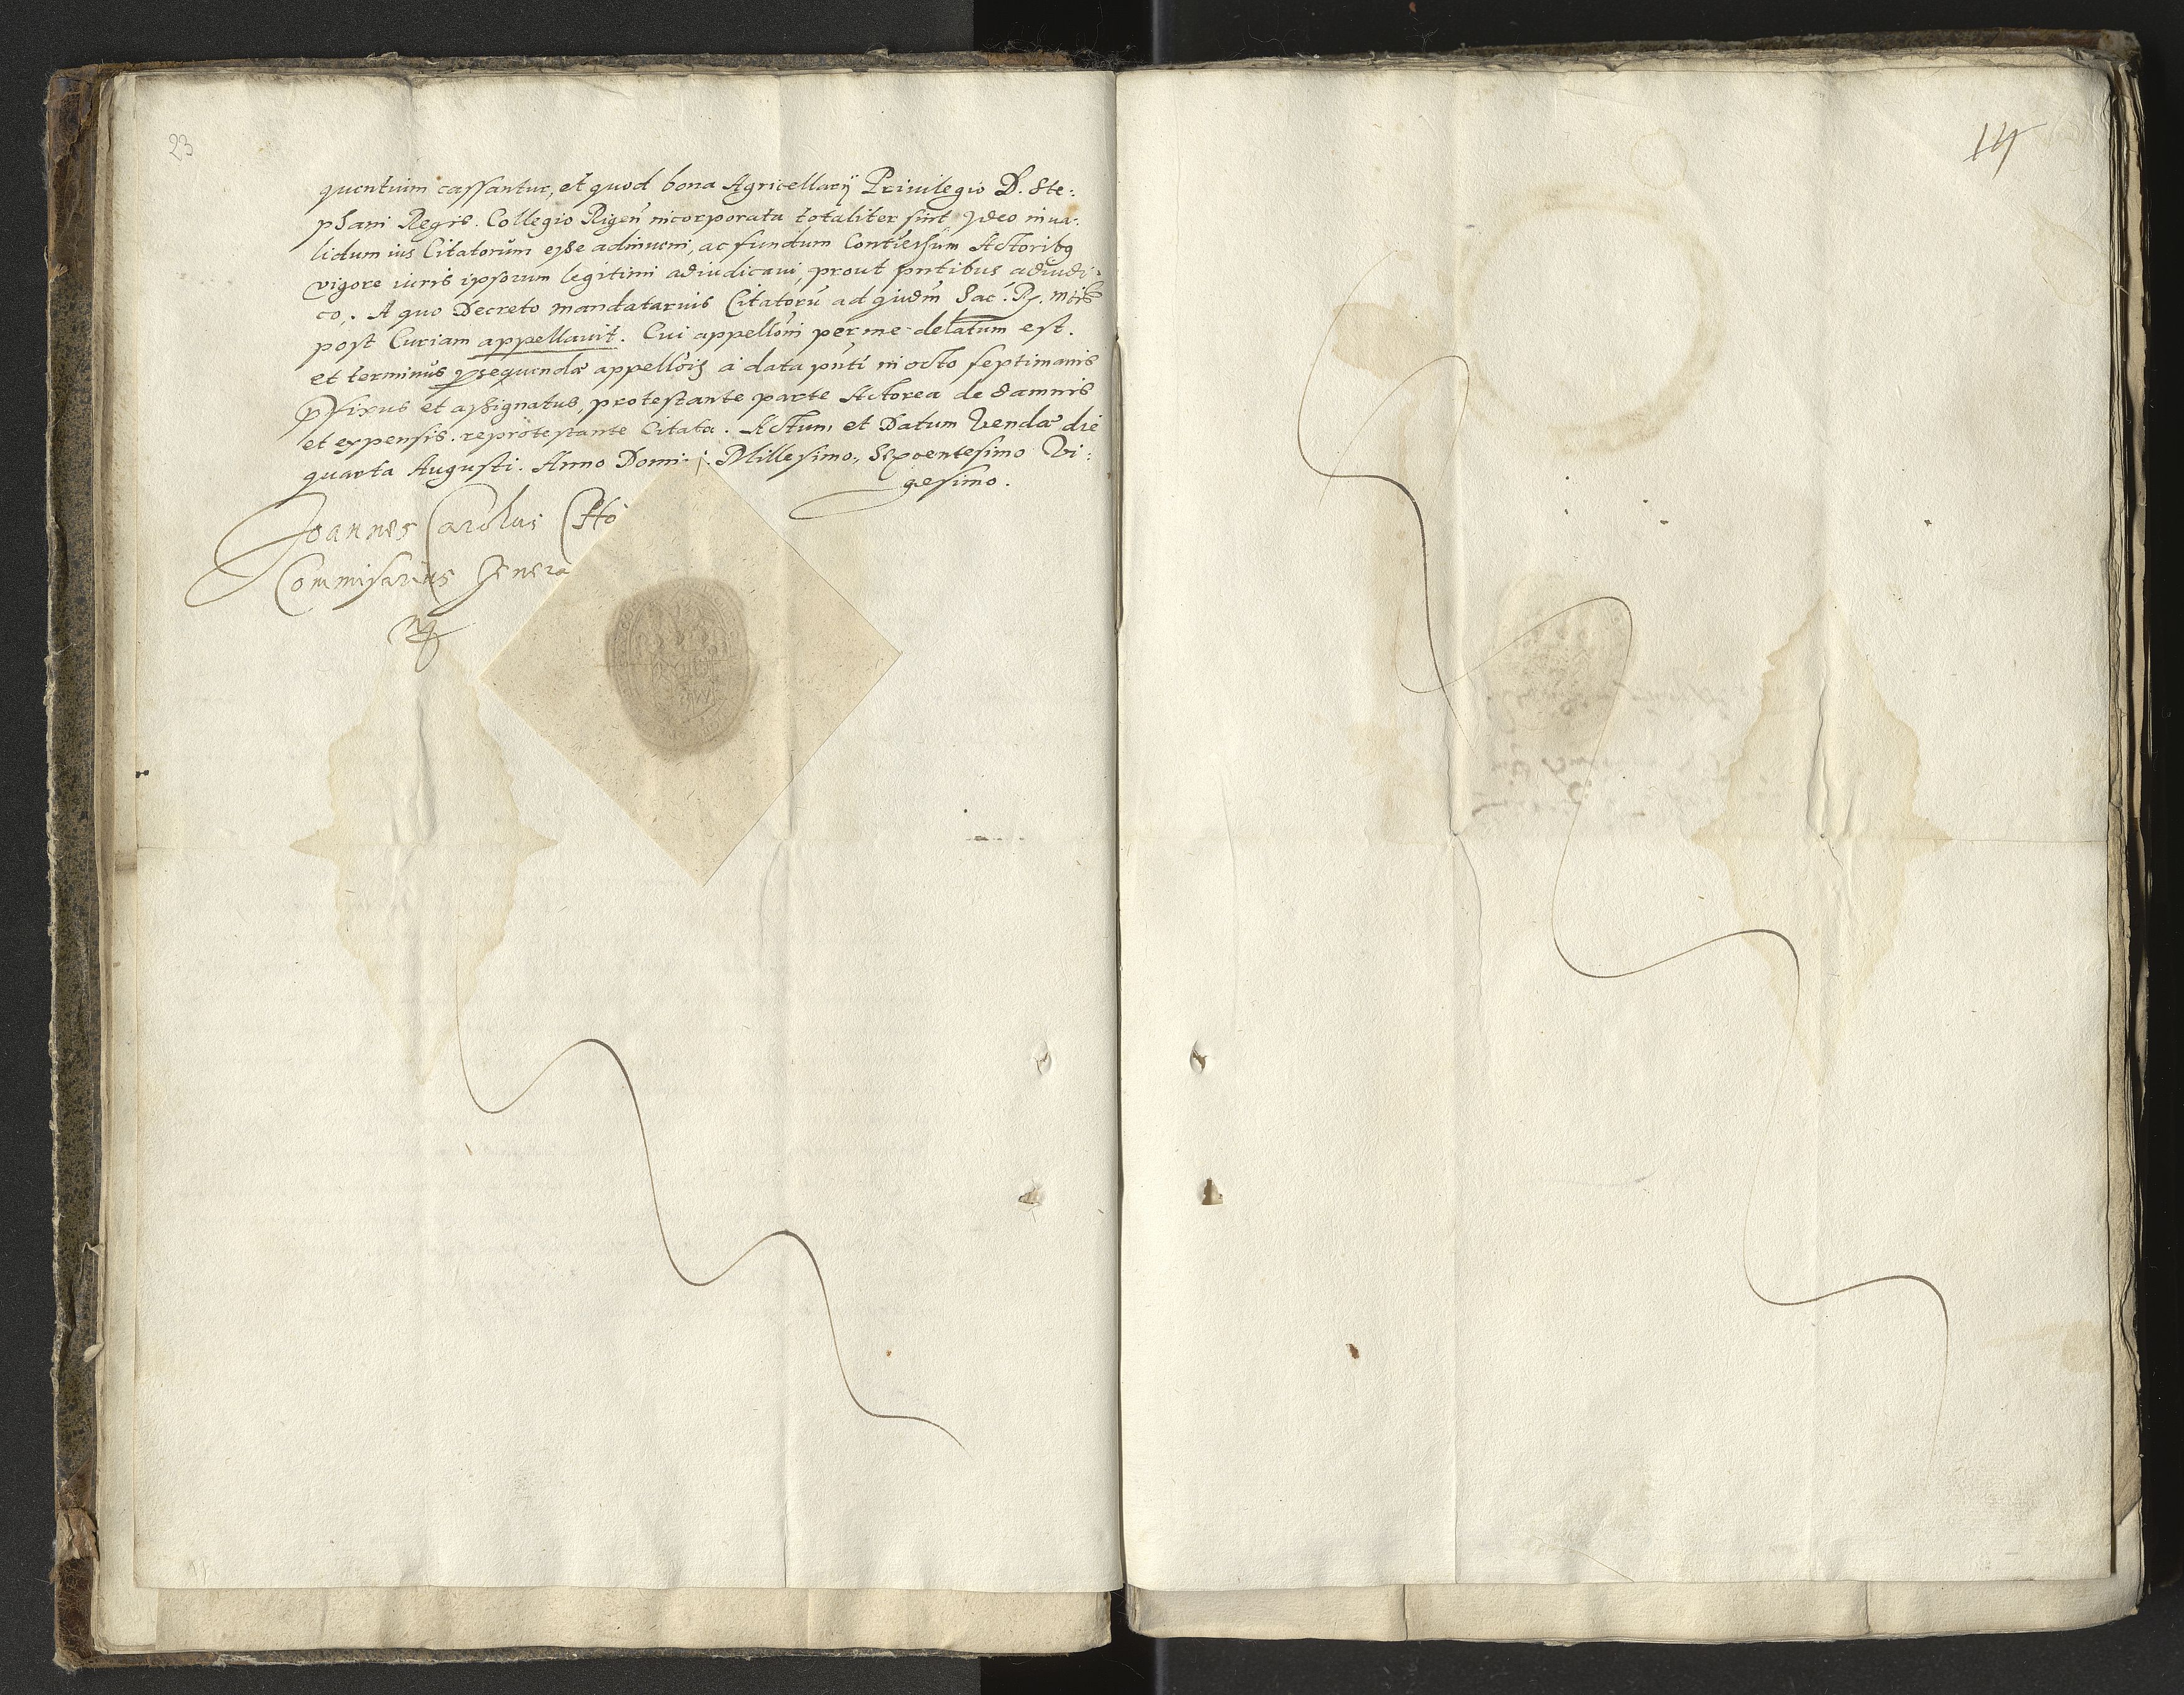 23
quentium cassantur, et quod bona Agricellarÿ Priuilegio D. Ste:
phani Regis. Collegio Rigeñ incorporata totaliter sint Ideo inua:
lidum ius Citatorum esse adinueni, ac fundum Conuersum Actoribq
vigore iuris ipsorum legitimi adiudicaui, prout pñtibus adiudi:
co,. A quo Decreto mandatarius Citatorũ ad Sac. R. Mtis
post Curiam appellauit. Cui appellõni per me delatum est.
et terminus psequendæ appellõis a data pñti in octo septimanis
pfixus et assignatus, protestante parte Actorea de damnis
et expensis. reprotestante Citata. Actum et Datum Vendæ die
quarta Augusti. Anno Domi: Millesimo, Sexcentesimo Vi:
gesimo.
Joannes Carolus
Commissarius Genera
14